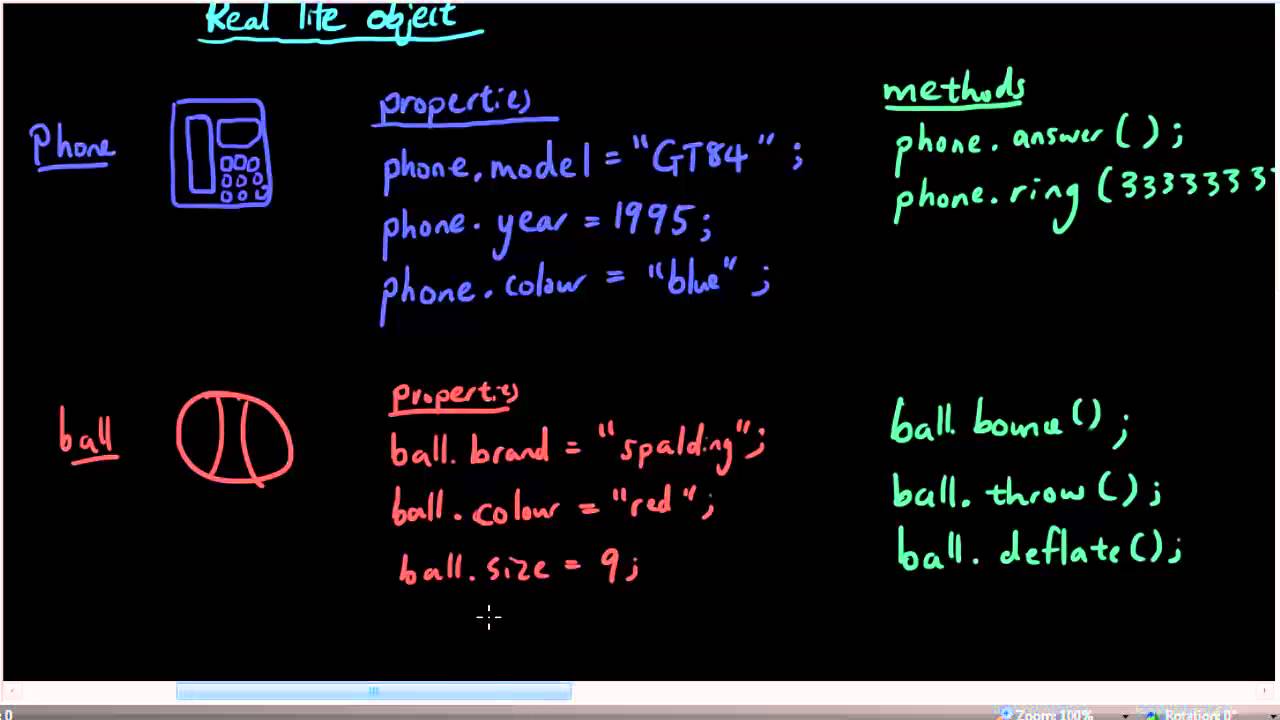 Real life object
Phone
properties
phone.model = "GT84";
phone.year = 1995;
phone.colour = "blue";
methods
phone.answer();
phone.ring(33333333
ball
properties
ball.brand = "spalding";
ball.colour = "red";
ball.size = 9;
ball.bounce();
ball.throw();
ball.deflate();
: 0
Zoom: 100%
Rotation: 0°